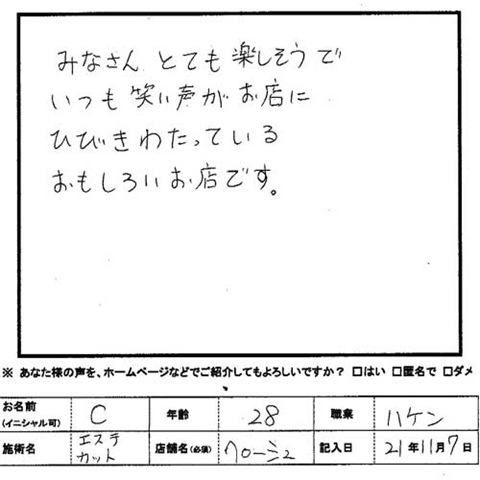 みなさん とても 楽しそうで
いつも 笑い声が お店に
ひびきわたっている
おもしろいお店です。
※ あなた様の声を、ホームページなどでご紹介してもよろしいですか？ □はい □匿名で □ダメ
お名前 (イニシャル可) C 年齢 28 職業 ハケン
施術名 エステ カット 店舗名(必須) ベローシュ 記入日 21年11月7日